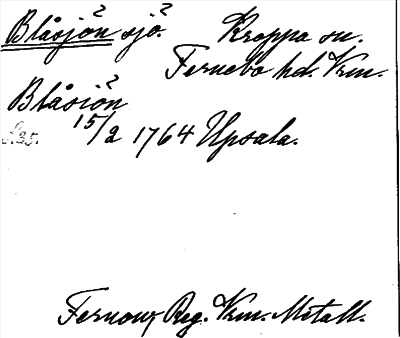 Blåsjön² sjö. Kroppa sn.
Fernebo hd. Vrm.
Blåsiön²
S.35. 15/2 1764 Upsala.
Fernow, Reg. Vrm. Metall.